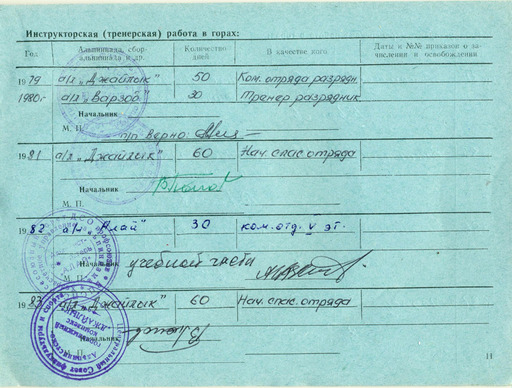 Инструкторская (тренерская) работа в горах:
Год Альпиниада, сбор альпинизма и др. Количество дней В качестве кого Даты и №№ приказов о зачислении и освобождении
1979 а/л „Джайлык" 50 Ком. отряда разрядн.
1980г. а/л „Варзоб" 30 Тренер разрядник
Начальник
М. П. п/п Верно:
1981 а/л „Джайлык" 60 Нач. спас. отряда
Начальник
М. П.
1982 а/л „Алай" 30 ком. отд. V эт.
Начальник учебной части
М. П.
1983 а/л „Джайлык" 60 Нач. спас. отряда
Начальник
11